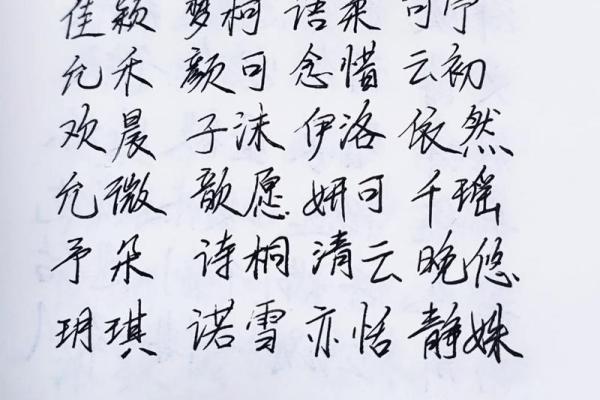 佳颖 梦柯 语柔 可予
允禾 颜可 念惜 云初
欢晨 子沫 伊洛 依然
允微 歆愿 妍可 千瑶
予朵 诗桐 清云 晚悠
玥琪 诺雪 亦恬 静姝